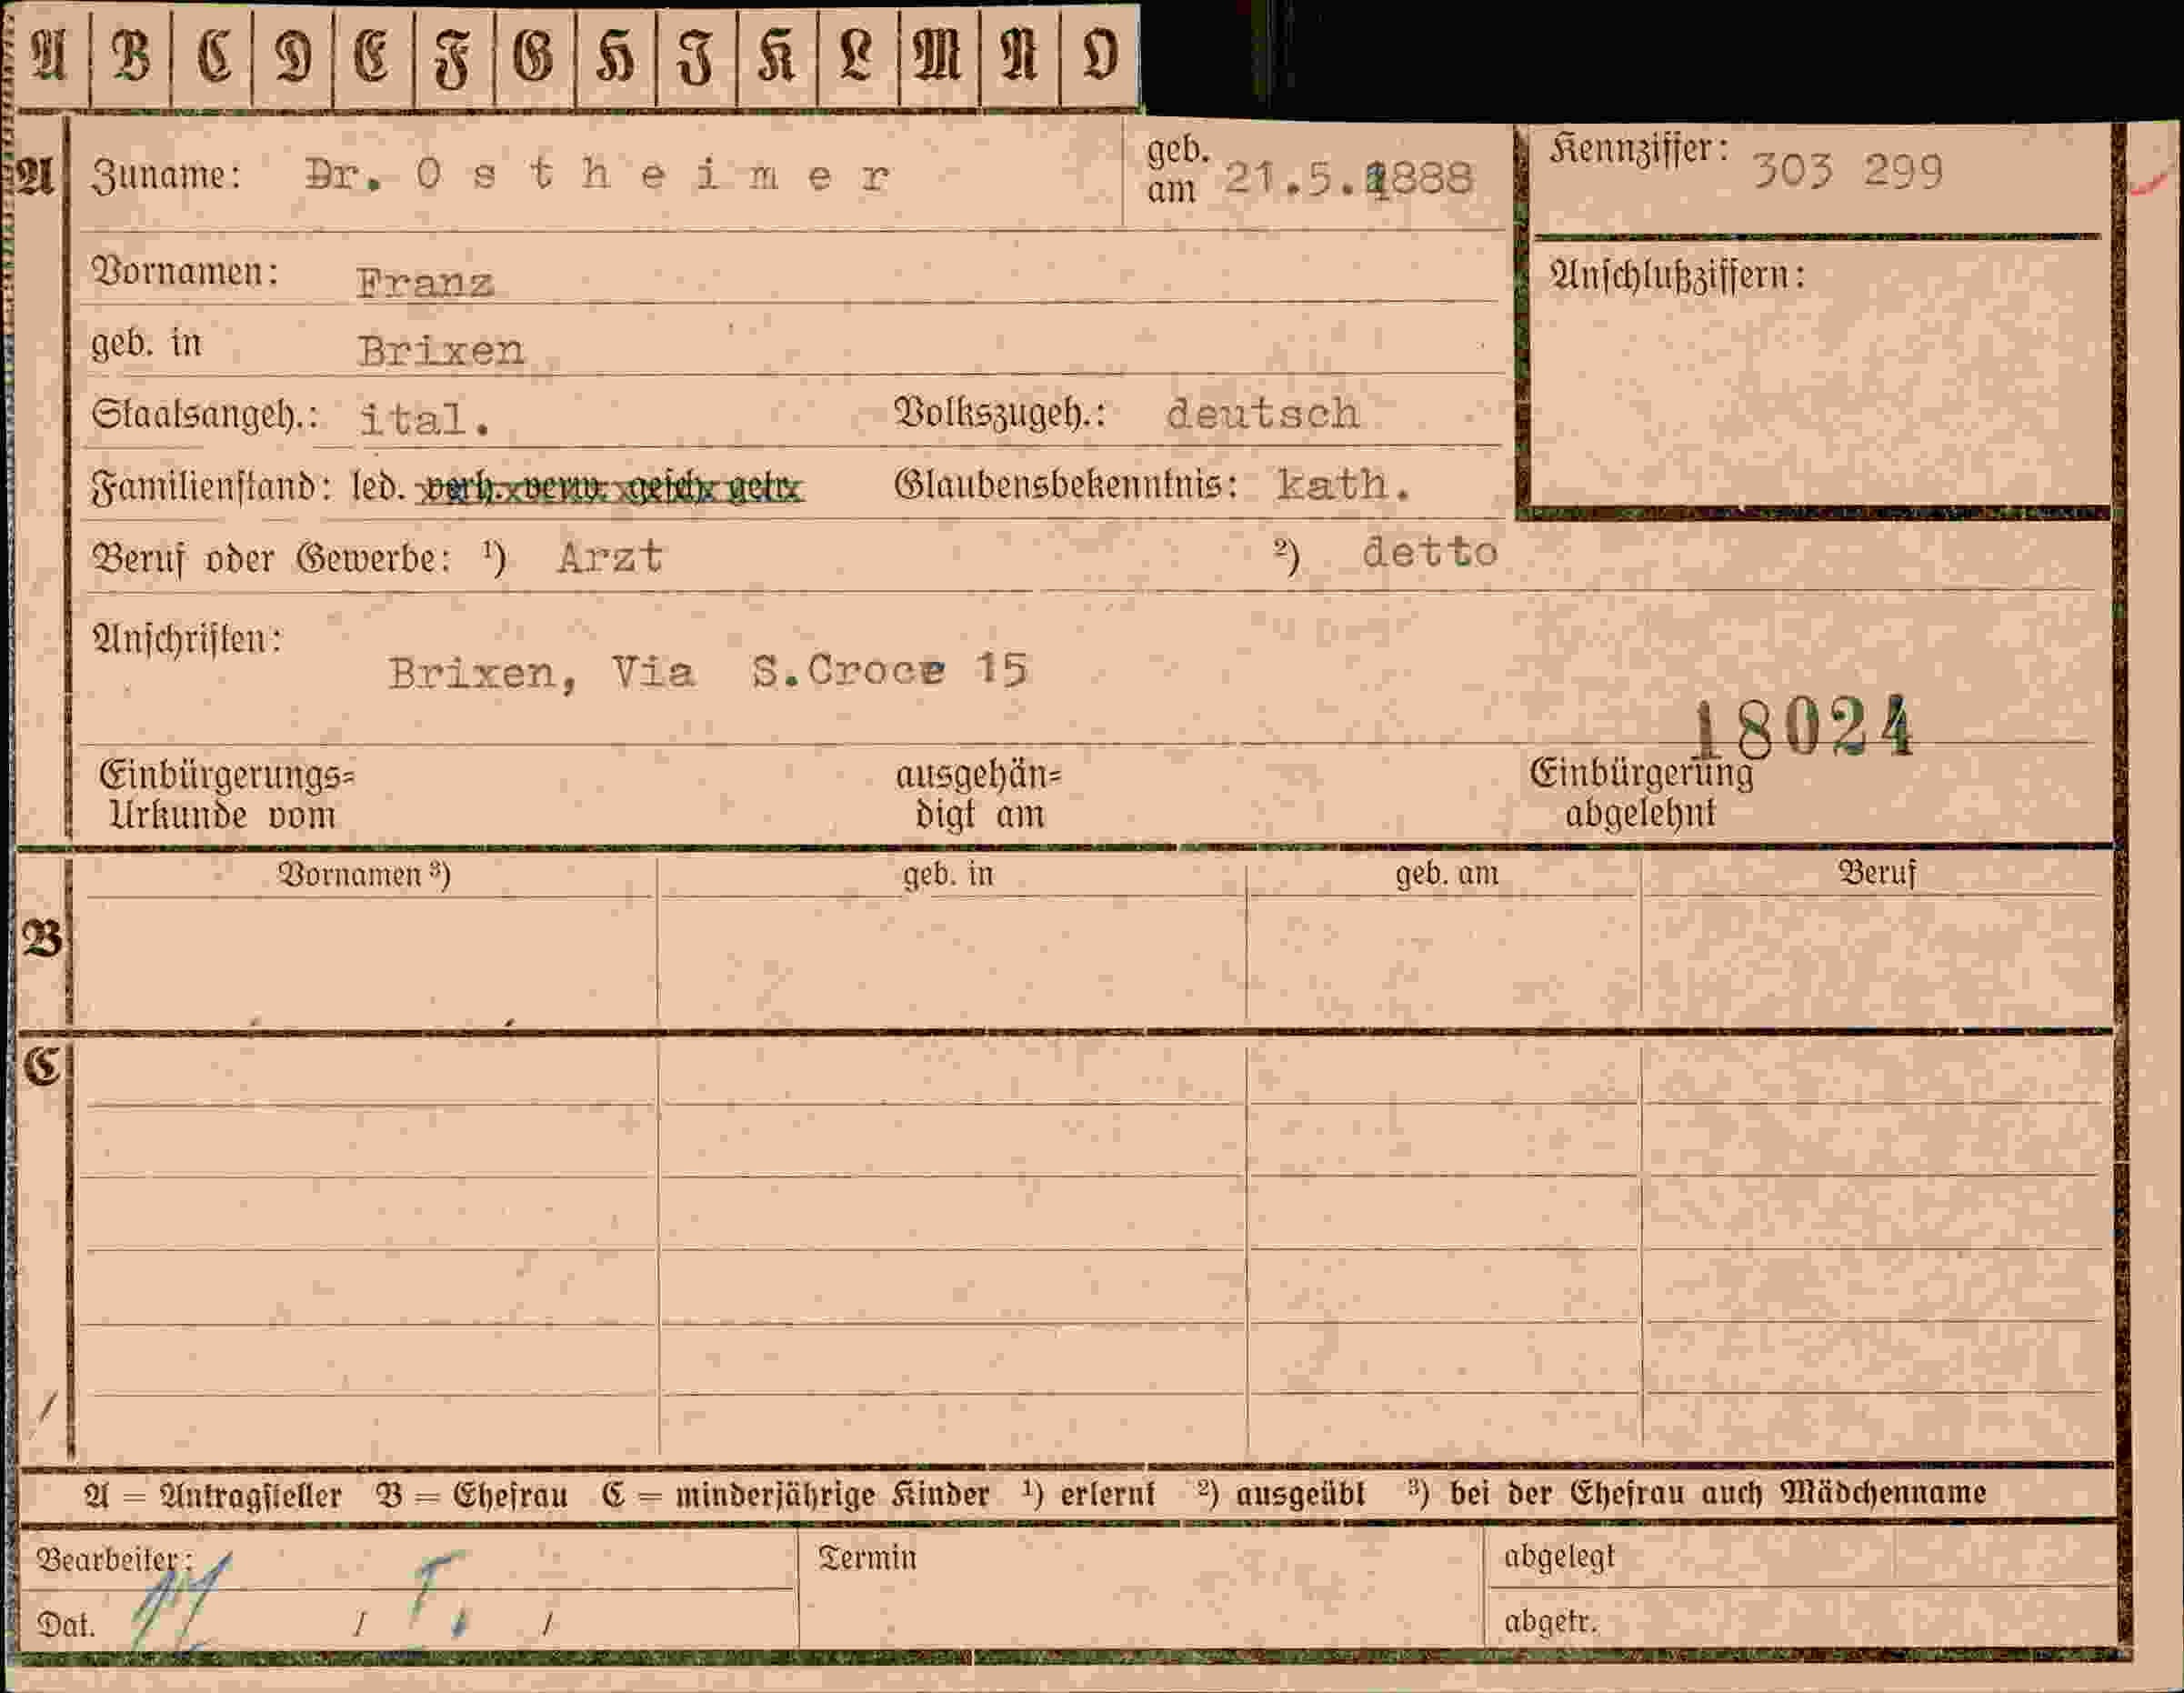 A B C D E F G H J K L M N O
A Zuname: Dr. Ostheimer geb. am 21.5.1888 Kennziffer: 303 299
Vornamen: Franz Anschlußziffern:
geb. in Brixen
Staatsangeh.: ital. Volkszugeh.: deutsch
Familienstand: led. verh. verw. gesch. getr. Glaubensbekenntnis: kath.
Beruf oder Gewerbe: ¹) Arzt ²) detto
Anschriften:
Brixen, Via S.Croce 15
18024
Einbürgerungs= ausgehän= Einbürgerung
Urkunde vom digt am abgelehnt
Vornamen ³) geb. in geb. am Beruf
B
C
/
A = Antragsteller B = Ehefrau C = minderjährige Kinder ¹) erlernt ²) ausgeübt ³) bei der Ehefrau auch Mädchenname
Bearbeiter: Termin abgelegt
Dat. / / abgetr.